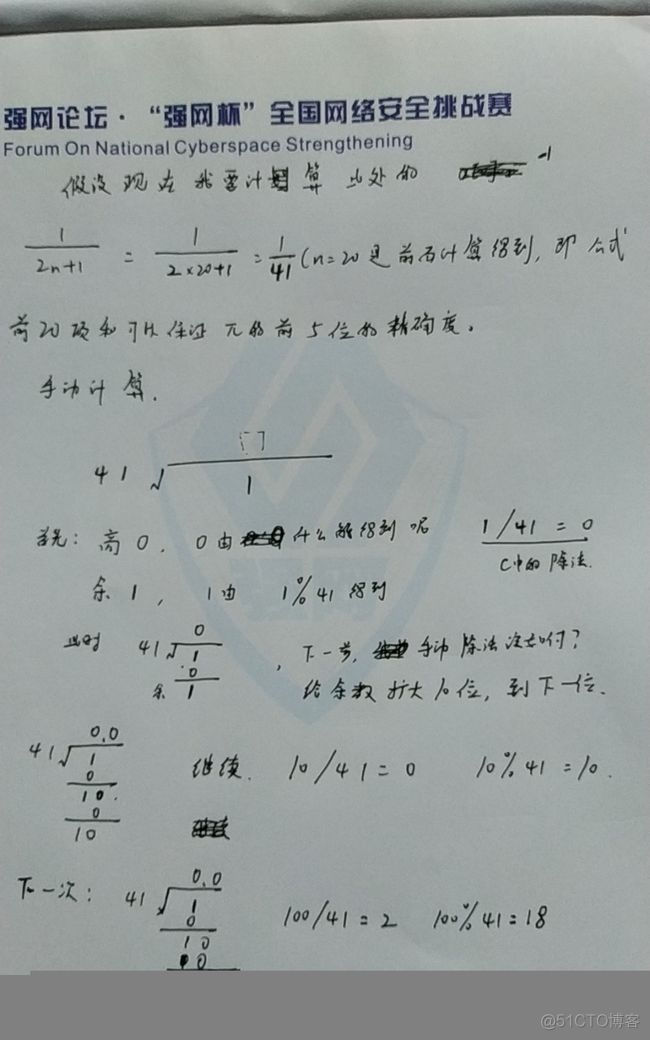 强网论坛·“强网杯”全国网络安全挑战赛
Forum On National Cyberspace Strengthening
假设现在我要计算此处的
1/(2n+1) = 1/(2×20+1) = 1/41 (n=20是前面计算得到, 即公式
前20项和可以保证π的前5位的精确度。
手动计算.
41 √ 1
首先: 商0, 0由什么能得到呢 1/41=0
C中的除法.
余1, 1由 1%41 得到
此时 41 √ 1 0 0 余 1 , 下一步, 手动除法该如何?
给余数扩大10位, 到下一位.
0.0
41 √ 1 继续. 10/41=0 10%41=10.
0
10.
0
10
下一次: 0.0
41 √ 1
0 100/41=2 100%41=18
10
0
@51CTO博客